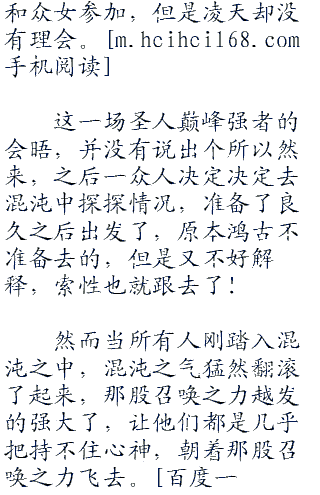 和众女参加，但是凌天却没
有理会。[m.hcihci168.com
手机阅读]
这一场圣人巅峰强者的
会晤，并没有说出个所以然
来，之后一众人决定决定去
混沌中探探情况，准备了良
久之后出发了，原本鸿古不
准备去的，但是又不好解
释，索性也就跟去了！
然而当所有人刚踏入混
沌之中，混沌之气猛然翻滚
了起来，那股召唤之力越发
的强大了，让他们都是几乎
把持不住心神，朝着那股召
唤之力飞去。[百度一